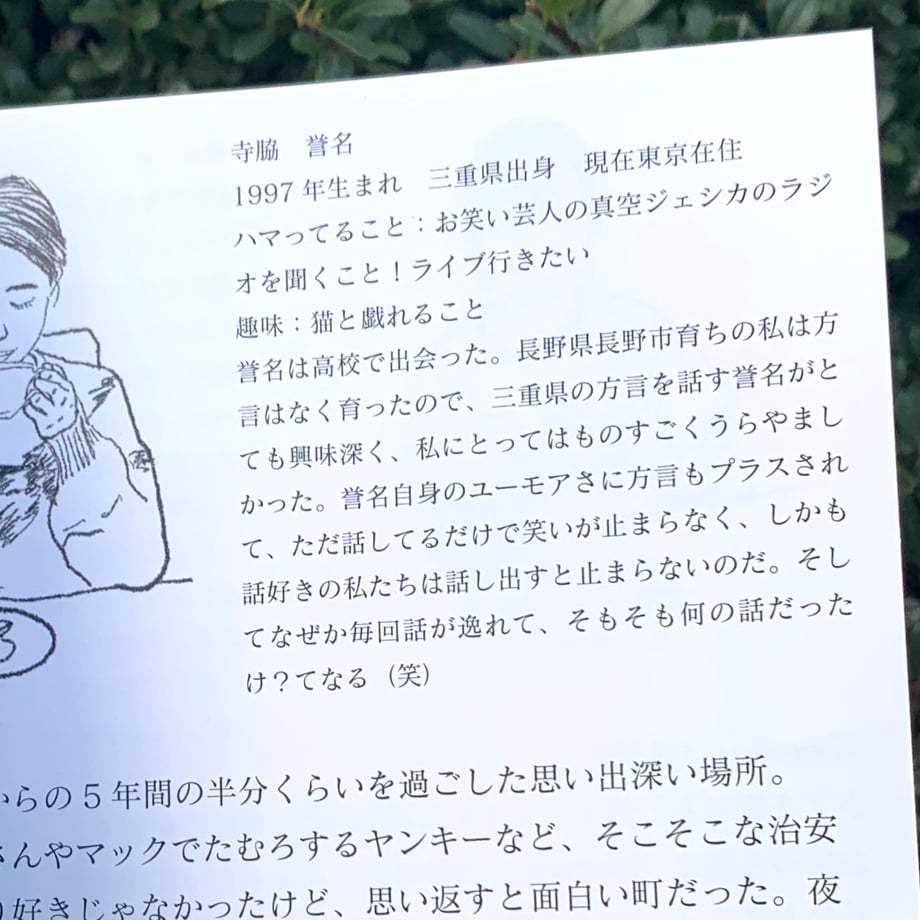 寺脇　誉名
1997年生まれ　三重県出身　現在東京在住
ハマってること：お笑い芸人の真空ジェシカのラジ
オを聞くこと！ライブ行きたい
趣味：猫と戯れること
誉名は高校で出会った。長野県長野市育ちの私は方
言はなく育ったので、三重県の方言を話す誉名がと
ても興味深く、私にとってはものすごくうらやまし
かった。誉名自身のユーモアさに方言もプラスされ
て、ただ話してるだけで笑いが止まらなく、しかも
話好きの私たちは話し出すと止まらないのだ。そし
てなぜか毎回話が逸れて、そもそも何の話だった
け？てなる（笑）
らの5年間の半分くらいを過ごした思い出深い場所。
さんやマックでたむろするヤンキーなど、そこそこな治安
好きじゃなかったけど、思い返すと面白い町だった。夜